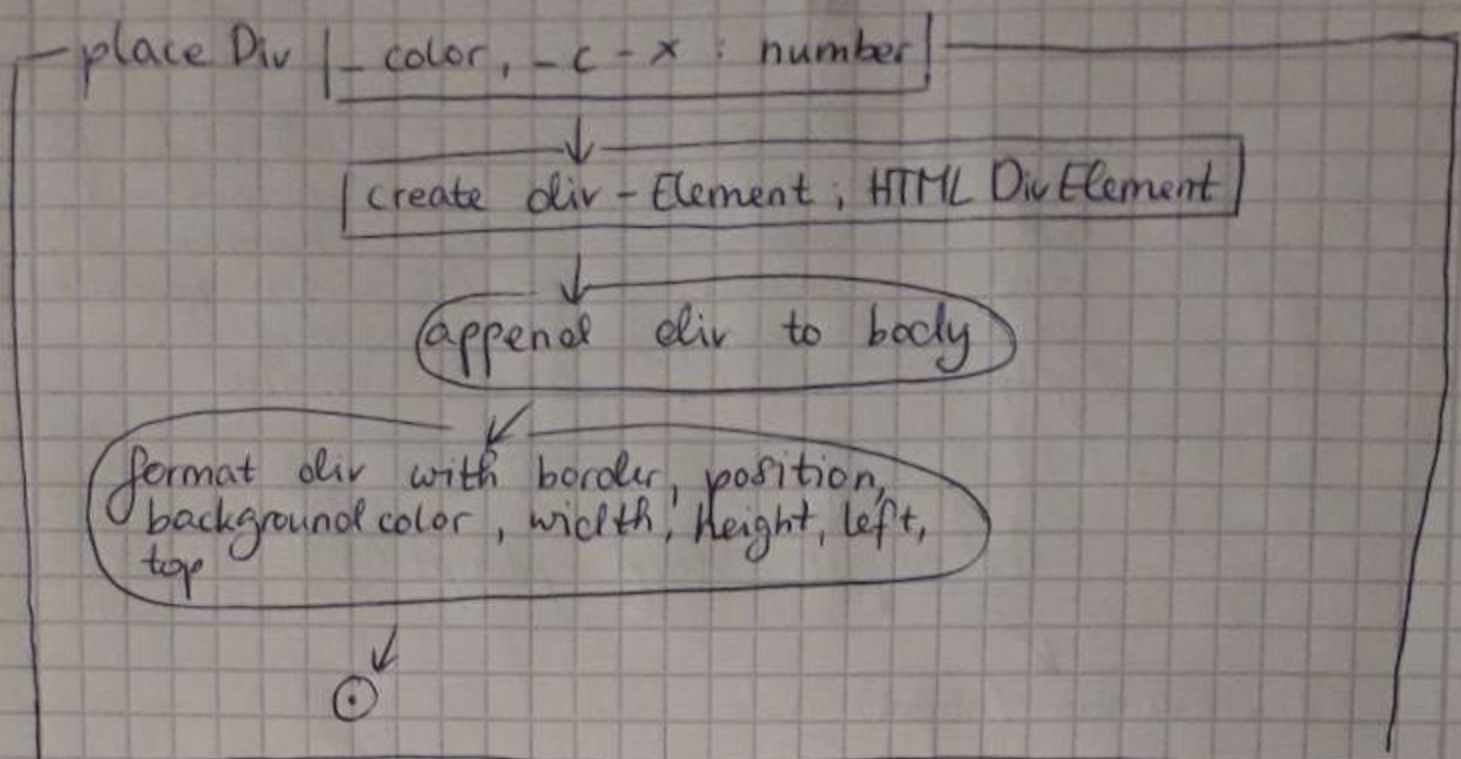 place Div _ color, - c - x : number
create div - Element ; HTML Div Element
append div to body
format div with border, position,
background color, width, height, left,
top